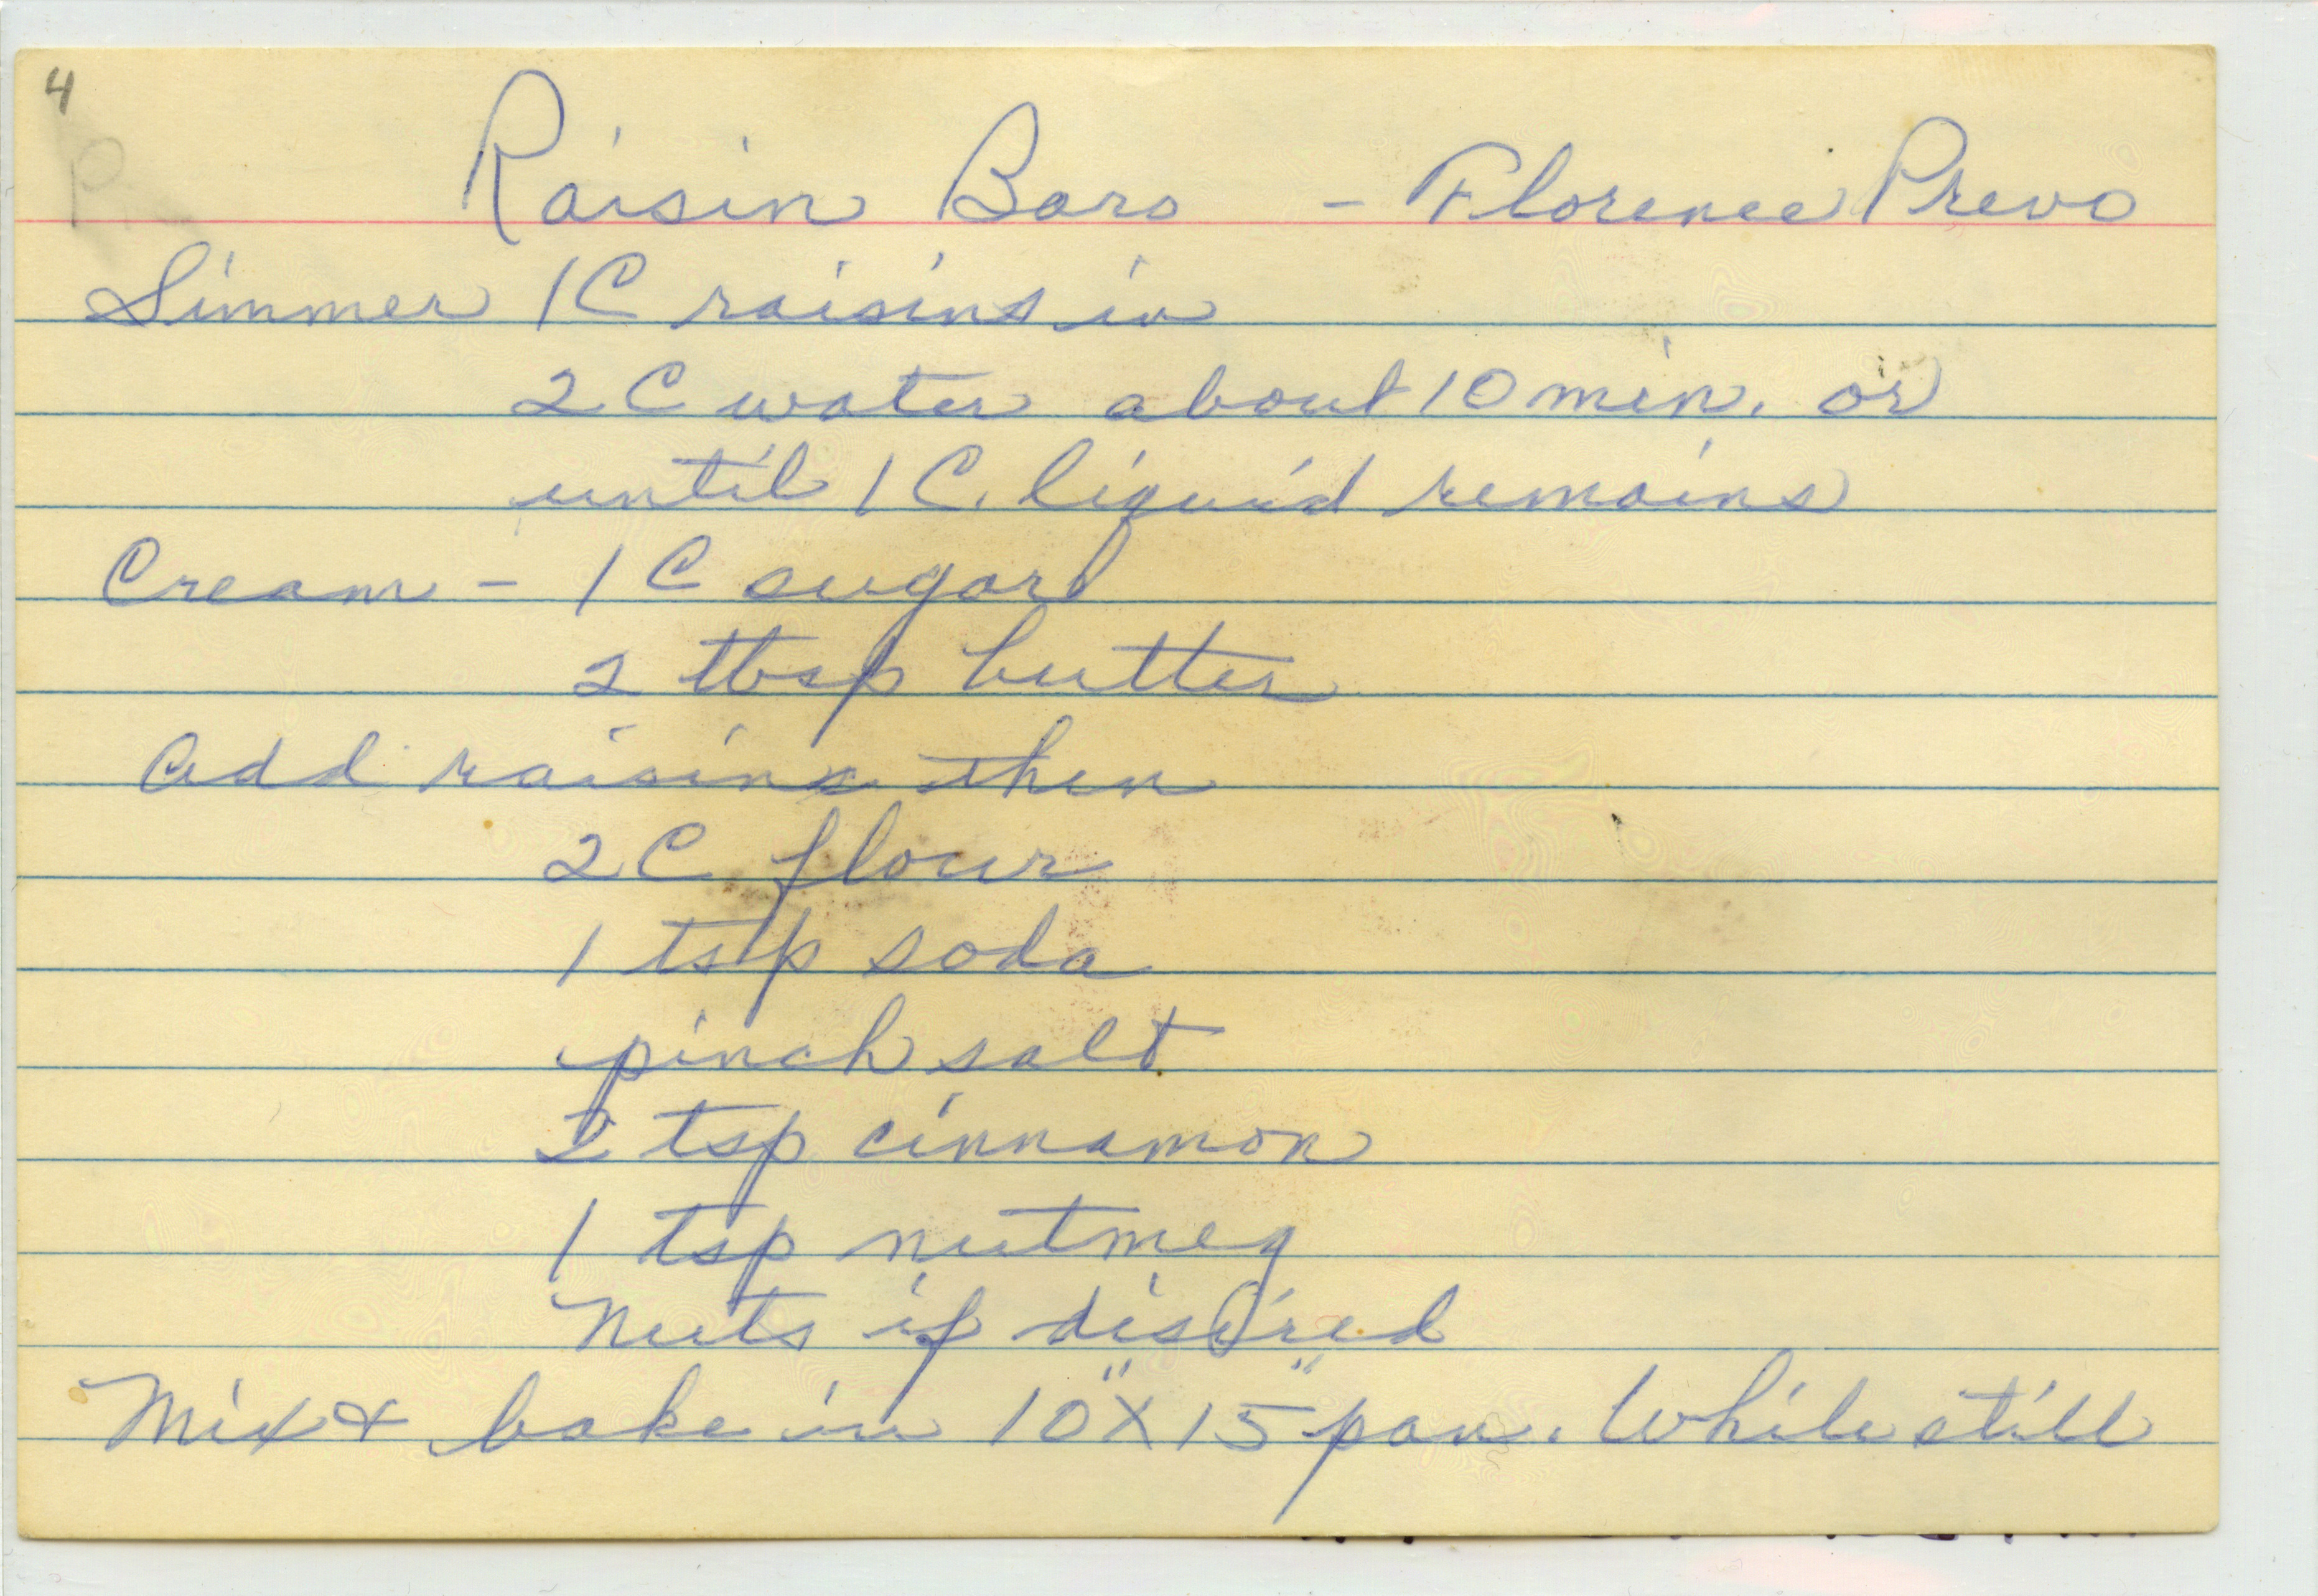 4
R
Raisin Bars - Florence Prevo
Simmer 1 C raisins in
2 C water about 10 min. or
until 1 C. liquid remains
Cream - 1 C sugar
2 tbsp butter
Add raisins then
2 C flour
1 tsp soda
pinch salt
2 tsp cinnamon
1 tsp nutmeg
Nuts if disired
Mix & bake in 10" X 15" pan. While still